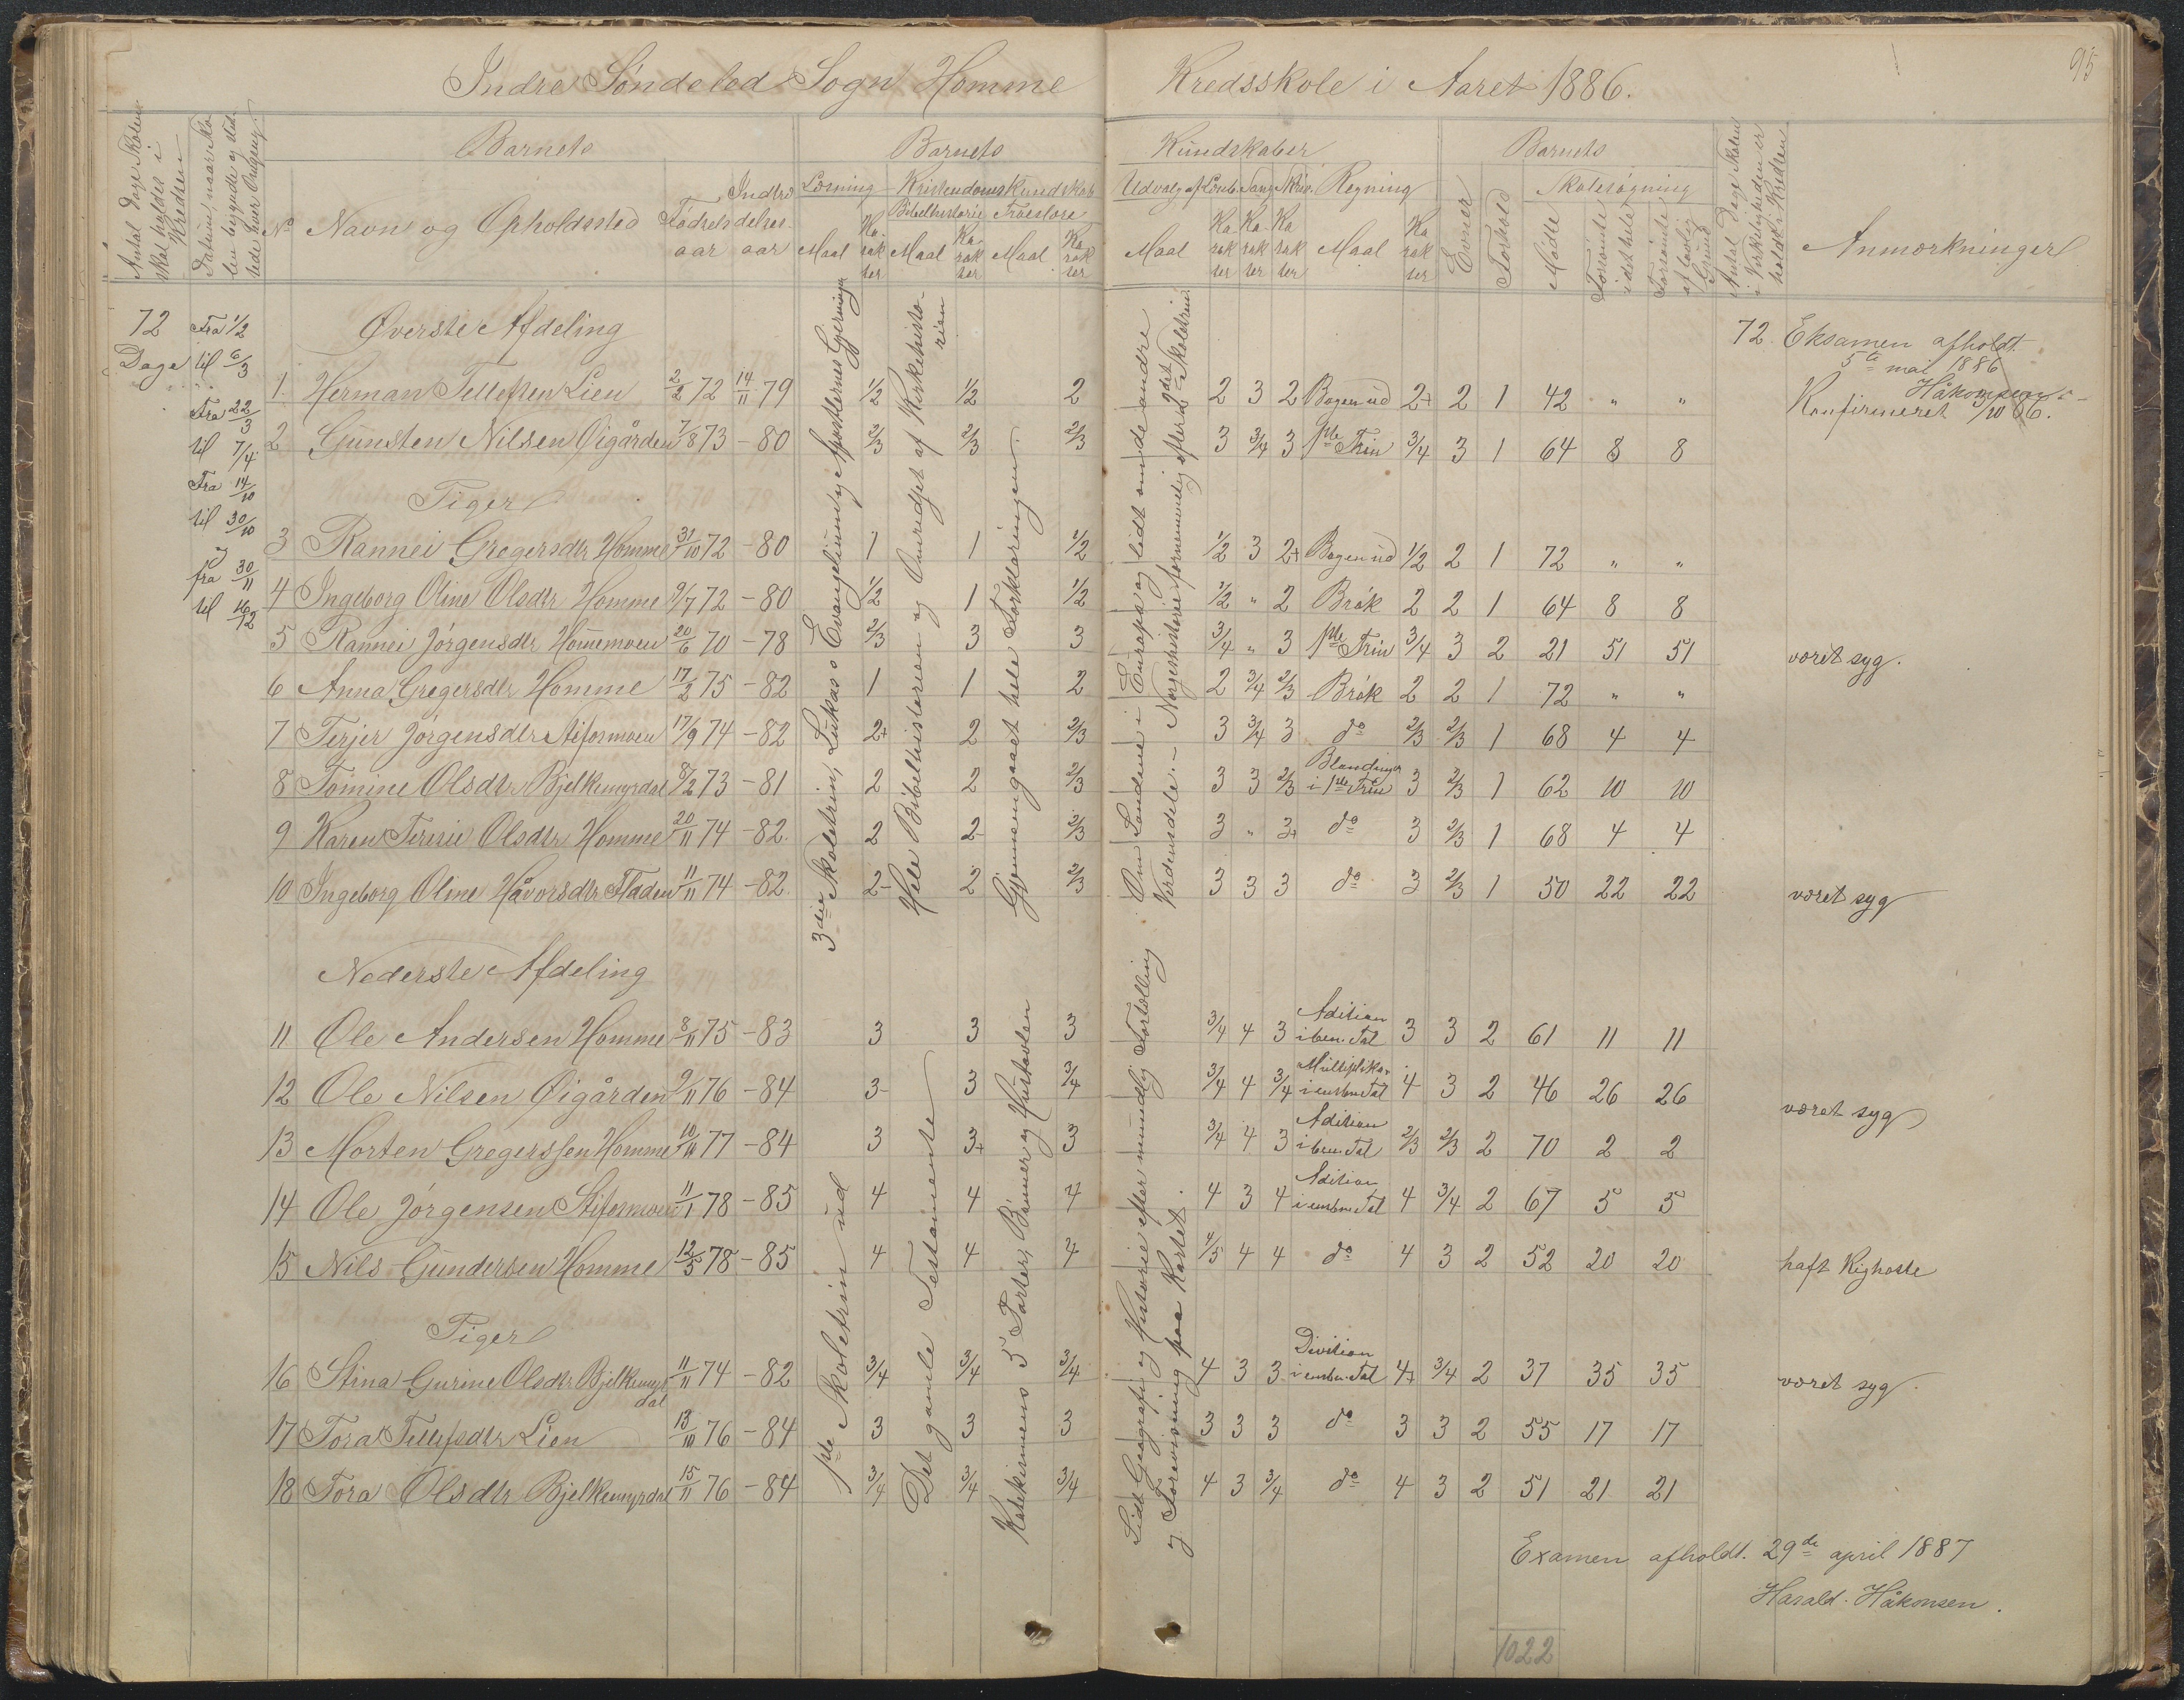 95
Indre Søndeled Sogn Homme Kredsskole i Aaret 1886.
Antal Dage Skolen skal holdes i Kredsen
Datum, naar Skolen begyndte og sluttede hver Omgang
Barnets
Barnets
Kundskaber
Barnets
Antal Dage Skolen i Virkeligheden er holdt i Kredsen
Anmærkninger
No Navn og Opholdssted Fødselsaar Indtrædelsesaar
Læsning Kristendomskundskab
Bibelhistorie Troeslære
Maal Karakter Maal Karakter Maal Karakter
Udvalg af Læseb. Sang Skriv. Regning
Maal Karakter Karakter Karakter Maal Karakter
Evner Forhold Skolesøgning
Mødte Forsømte i det hele Forsømte af lovlig Grund
72 Dage
Fra 1/2
til 6/3
Fra 22/3
til 7/4
Fra 14/10
til 30/10
og
fra 30/11
til 16/12
3die Skoletrin, Lukas's Evangelium og Apostlernes Gjerninger
Hele Bibelhistorien og Omridset af Kirkehistorien
Gjennemgaaet hele Forklaringen.
Om Landene i Europa og lidt om de andre Verdensdele. – Norgeshistorie fornemmelig efter 2det Skoletrin.
Øverste Afdeling
72. Eksamen afholdt
5te mai 1886
Håkonsen
1. Herman Tellefsen Lien 2/2 72 14/11 79 1/2 1/2 2 2 3 2 Bogen ud 2+ 2 1 42 " " Konfirmeret 3/10 86.
2 Gunsten Nilsen Øigården 7/8 73 – 80 2/3 2/3 2/3 3 3/4 3 1ste Trin 3/4 3 1 64 8 8
Piger
3 Rannei Gregersdtr Homme 31/10 72 – 80 1 1 1/2 1/2 3 2+ Bogen ud 1/2 2 1 72 " "
4 Ingeborg Oline Olsdtr Homme 9/7 72 – 80 1/2 1 1/2 1/2 " 2 Brøk 2 2 1 64 8 8
5 Rannei Jørgensdtr Hommemoen 20/6 70 – 78 2/3 3 3 3/4 " 3 1ste Trin 3/4 3 2 21 51 51 været syg.
6 Anna Gregersdtr Homme 17/2 75 – 82 1 1 2 2 3/4 2/3 Brøk 2 2 1 72 " "
7 Terjer Jørgensdtr Stifosmoen 17/9 74 – 82 2+ 2 2/3 3 3/4 3 do 2/3 2/3 1 68 4 4
8 Tomine Olsdtr Bjelkemyrdal 8/2 73 – 81 2 2 2/3 3 3 2/3 Blandinger i 1ste Trin 3 2/3 1 62 10 10
9 Karen Terine Olsdtr Homme 20/11 74 – 82. 2 2- 2/3 3 " 3+ do 3 2/3 1 68 4 4
10 Ingeborg Oline Håvorsdtr Fladen 11/11 74 – 82. 2- 2 2/3 3 3 3 do 3 2/3 1 50 22 22 været syg
Nederste Afdeling
1ste Skoletrin ud
Det gamle Testamente
Katekismens 5 Parter, Bønner og Hustavlen
Lidt Geografi og Historie efter mundtlig Fortælling og Forevisning paa Kartet.
11 Ole Andersen Homme 8/11 75 – 83 3 3 3 3/4 4 3 Adition i ben. Tal 3 3 2 61 11 11
12 Ole Nilsen Øigården 9/11 76 – 84 3- 3 3/4 3/4 4 3/4 Multiplika. i ensben Tal 4 3 2 46 26 26 været syg
13 Morten Gregerssen Homme 10/11 77 – 84 3 3+ 3 3/4 4 3 Adition i ben. Tal 2/3 2/3 2 70 2 2
14 Ole Jørgensen Stifosmoen 11/1 78 – 85 4 4 4 4 3 4 Adition i ensben. Tal 4 3/4 2 67 5 5
15 Nils Gundersen Homme 12/5 78 – 85 4 4 4 4/5 4 4 do 4 3 2 52 20 20 haft Kighoste
Piger
16 Stina Gurine Olsdtr Bjelkemyrdal 11/11 74 – 82 3/4 3/4 3/4 4 3 3 Division i ensben. Tal 4+ 3/4 2 37 35 35 været syg.
17 Tora Tellefsdtr Lien 13/10 76 – 84 3 3 3 3 3 3 do 3 3 2 55 17 17
18 Tora Olsdtr Bjelkemyrdal 15/11 76 – 84 3/4 3/4 3/4 4 3 3/4 do 4 3 2 51 21 21
Examen afholdt. 29de april 1887
Harald Håkonsen.
1022